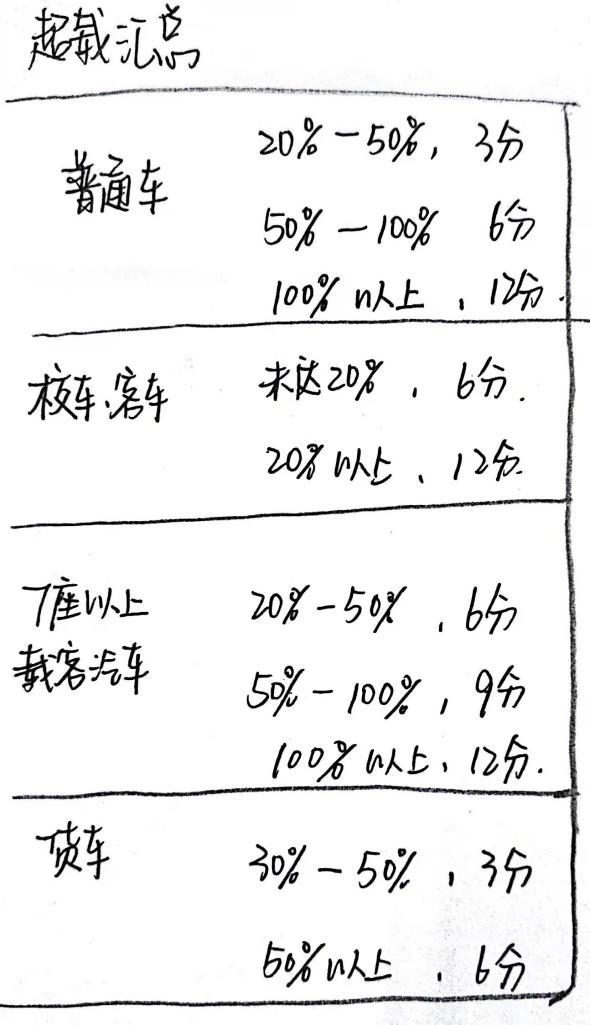 超载汇总
普通车 20%-50%, 3分
50%-100% 6分
100%以上, 12分.
校车、客车 未达20%, 6分.
20%以上, 12分.
7座以上 20%-50%, 6分
载客汽车 50%-100%, 9分
100%以上, 12分.
货车 30%-50%, 3分
50%以上, 6分